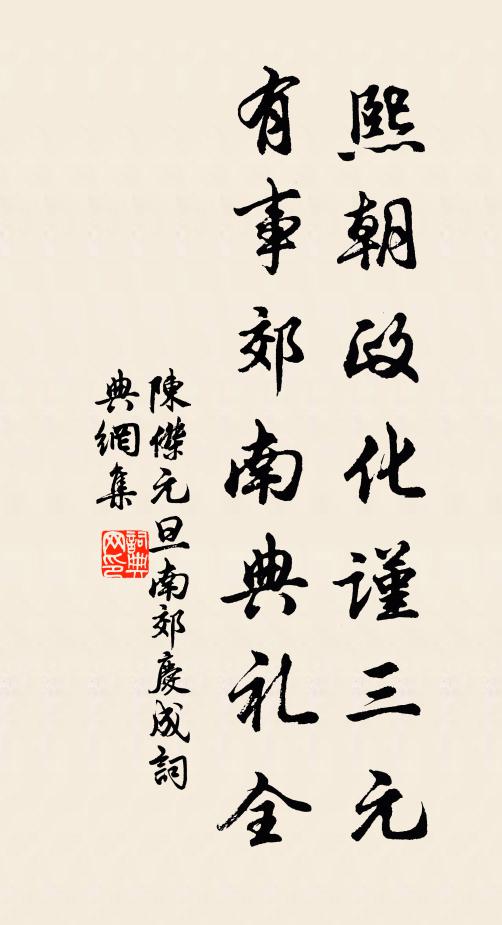 熙朝政化谨三元
有事郊南典礼全
陳傑元旦南郊慶成詞
典網集
詞典網印